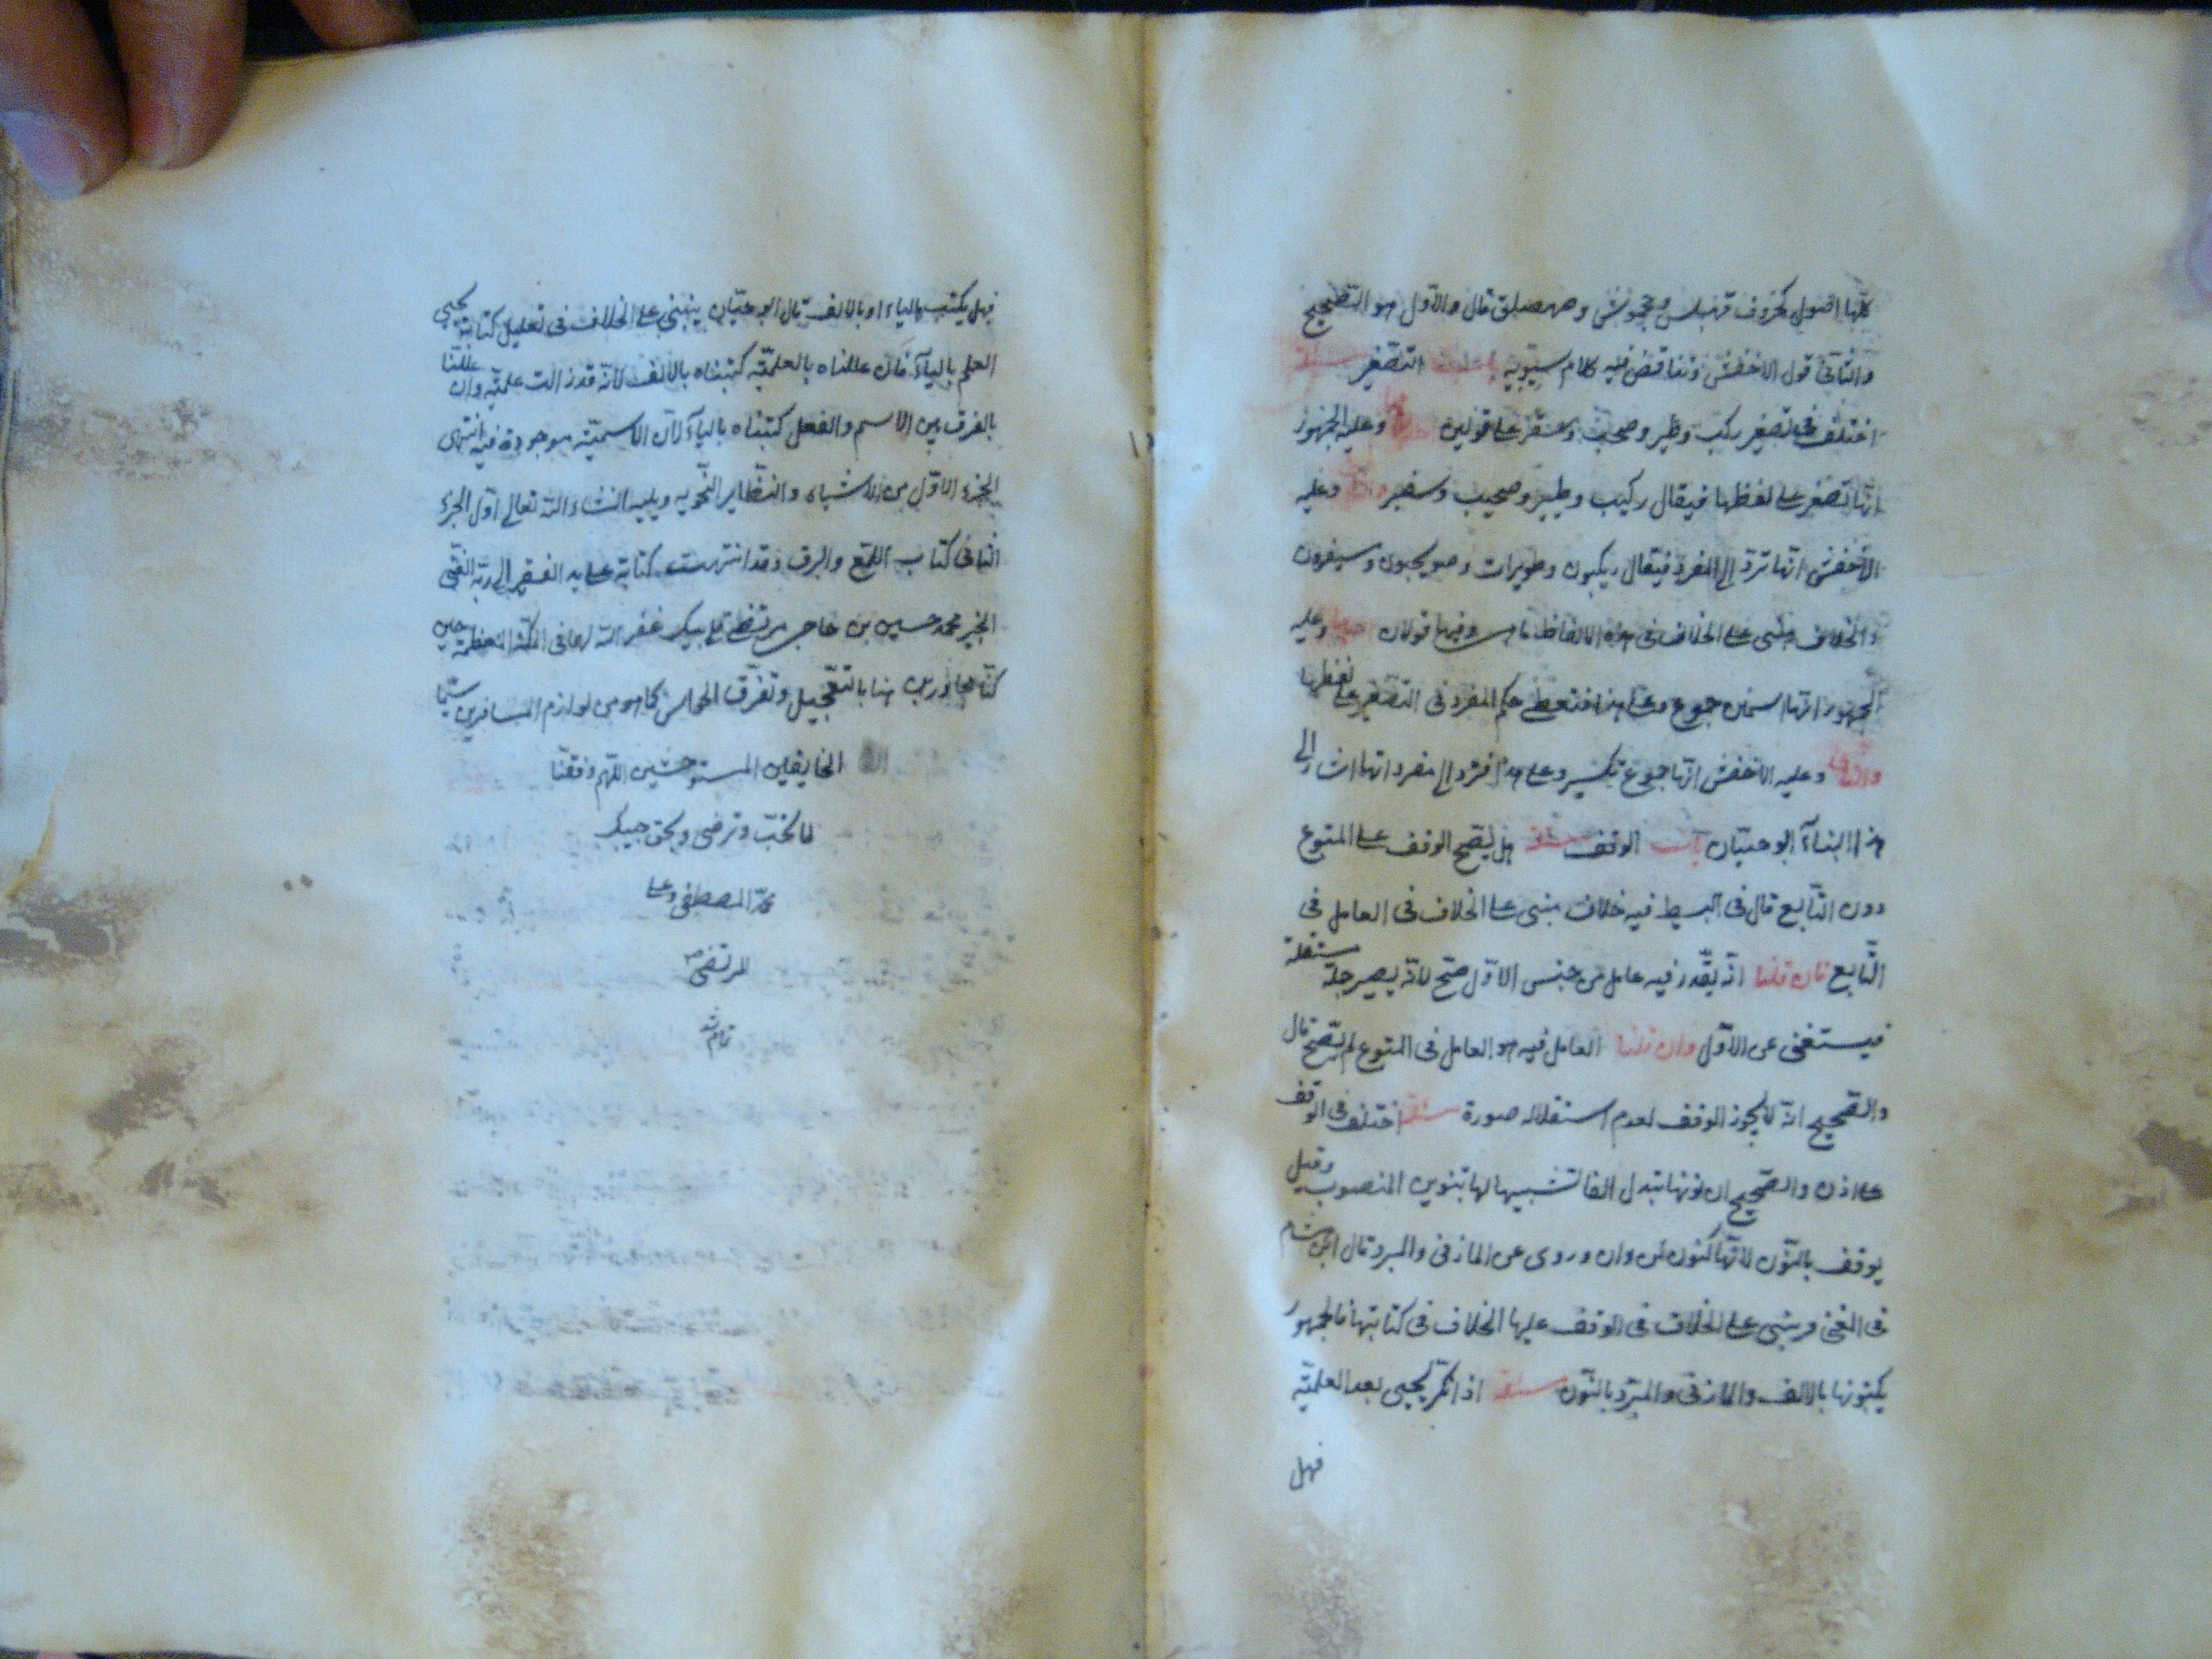 كلّها اصول كحروف قهبلس وجحموش وصهصلق قال والاوّل هو الصّحيح
والثانى قول الاخفش وتناقض فيه كلام سيبويه باب التّصغير مسئلة
اختلف فى تصغير ركب وطير وصحب وسفر على قولين احدهما وعليه الجمهور
انّها تصغر على لفظها فيقال ركيب وطيير وصحيب وسفير والثانى وعليه
الاخفش انّها تردّ الى المفرد فيقال ركيبون وطويرات وصويحبون وسيفرون
والخلاف مبنى على الخلاف فى هذه الالفاظ وفيها قولان احدهما وعليه
الجمهور انّها اسماء جموع وعلى هذا فتعطى حكم المفرد فى التّصغير على لفظها
والثانى وعليه الاخفش انّها جموع تكسير وعلى هذا فتردّ الى مفرداتها اشار الى
هذا البناء ابو حيّان باب الوقف مسئلة هل يصحّ الوقف على المتبوع
دون التّابع قال فى البسيط فيه خلاف مبنى على الخلاف فى العامل فى
التّابع فان قلنا انّه يقّدر فيه عامل من جنس الاوّل صحّ لانّه يصير جملة مستقلة
فيستغنى عن الاوّل وان قلنا العامل فيه هو العامل فى المتبوع لم يصحّ قال
والصّحيح انّه لا يجوز الوقف لعدم استقلاله صورة مسئلة اختلف فى الوقف
على اذن والصّحيح ان نونها تبدل الفا تشبيها لها بتنوين المنصوب وقيل
يوقف بالنّون لانّها كنون لن وان وروى عن المازنى والمبرد قال ابن هشام
فى المغنى وينبنى على الخلاف فى الوقف عليها الخلاف فى كتابتها فالجمهور
يكتبونها بالالف والمازنى والمبرّد بالنّون مسئلة اذا نكّر يحيى بعد العلميّة
فهل
فهل يكتب بالياء او بالالف قال ابو حيّان ينبنى على الخلاف فى تعليل كتابة يحيى
العلم بالياء فان عللناه بالعلميّة كتبناه بالالف لانّه قد زالت علميّته وان عللنا
بالفرق بين الاسم والفعل كتبناه بالياء لانّ الاسميّة موجودة فيه انتهى
الجزء الاوّل من الاشباه والنّظاير النّحويه ويليه انشاء الله تعالى اوّل الجزء
الثانى كتاب اللمع والبرق وقد انتهت كتابته على يد الفقير الى ربّه الغنى
الخبير محمد حسين بن حاجى مرتضى قلى بيك غفر الله لهما فى المكّة المعظمة حين
كنّا مجاورين بها بالتّعجيل وتفرّق الحواس كما هو من لوازم المسافرين سيّما
الخايفين المستوحشين اللّهم وفقنا
لما تحبّ وترضى وبحق حبيبك
محمّد المصطفى وعلى
المرتضى
تمام شد